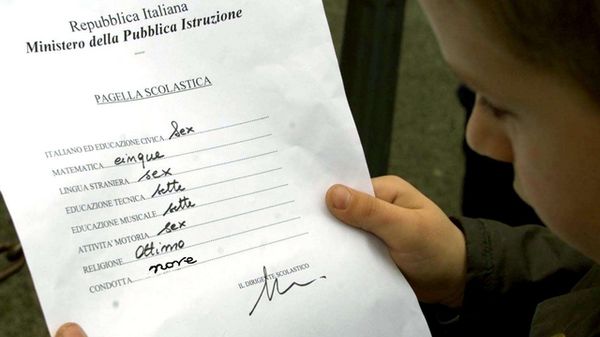 Repubblica Italiana
Ministero della Pubblica Istruzione
PAGELLA SCOLASTICA
ITALIANO ED EDUCAZIONE CIVICA sex
MATEMATICA cinque
LINGUA STRANIERA sex
EDUCAZIONE TECNICA sette
EDUCAZIONE MUSICALE sette
ATTIVITA' MOTORIA sex
RELIGIONE Ottimo
CONDOTTA nove
IL DIRIGENTE SCOLASTICO